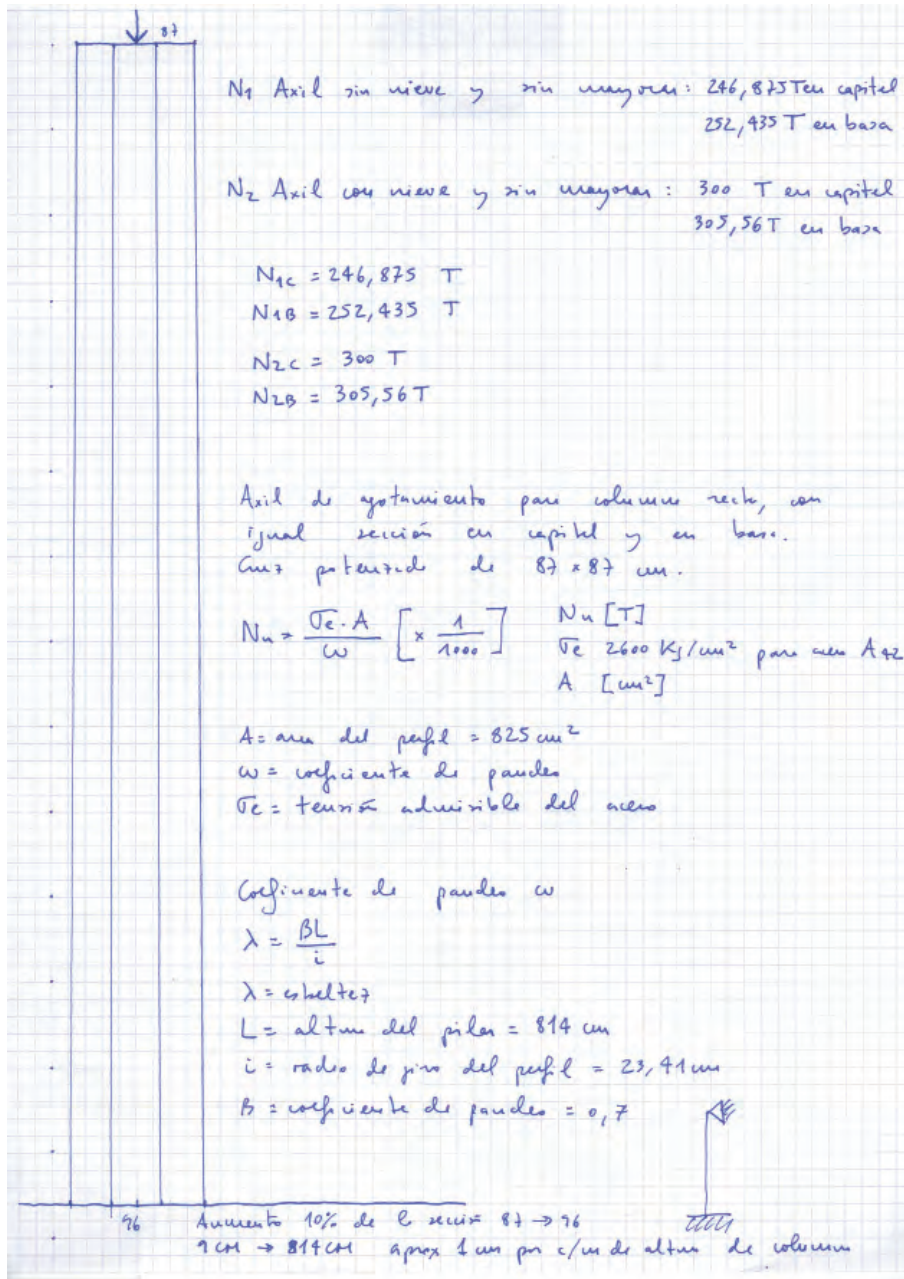 87
N1 Axil sin nieve y sin mayorar: 246,875 T en capitel
252,435 T en basa
N2 Axil con nieve y sin mayorar: 300 T en capitel
305,56 T en basa
N1C = 246,875 T
N1B = 252,435 T
N2C = 300 T
N2B = 305,56 T
Axil de agotamiento para columna recta, con
igual sección en capitel y en basa.
Cruz potenzada de 87 × 87 cm.
Nu = σe·A / ω [× 1/1000] Nu [T]
σe 2600 Kg/cm² para acero A42
A [cm²]
A = area del perfil = 825 cm²
ω = coeficiente de pandeo
σe = tensión admisible del acero
Coeficiente de pandeo ω
λ = βL / i
λ = esbeltez
L = altura del pilar = 814 cm
i = radio de giro del perfil = 23,41 cm
β = coeficiente de pandeo = 0,7
96 Aumento 10% de la sección 87 → 96
9 CM → 814 CM aprox 1 cm por c/m de altura de columna